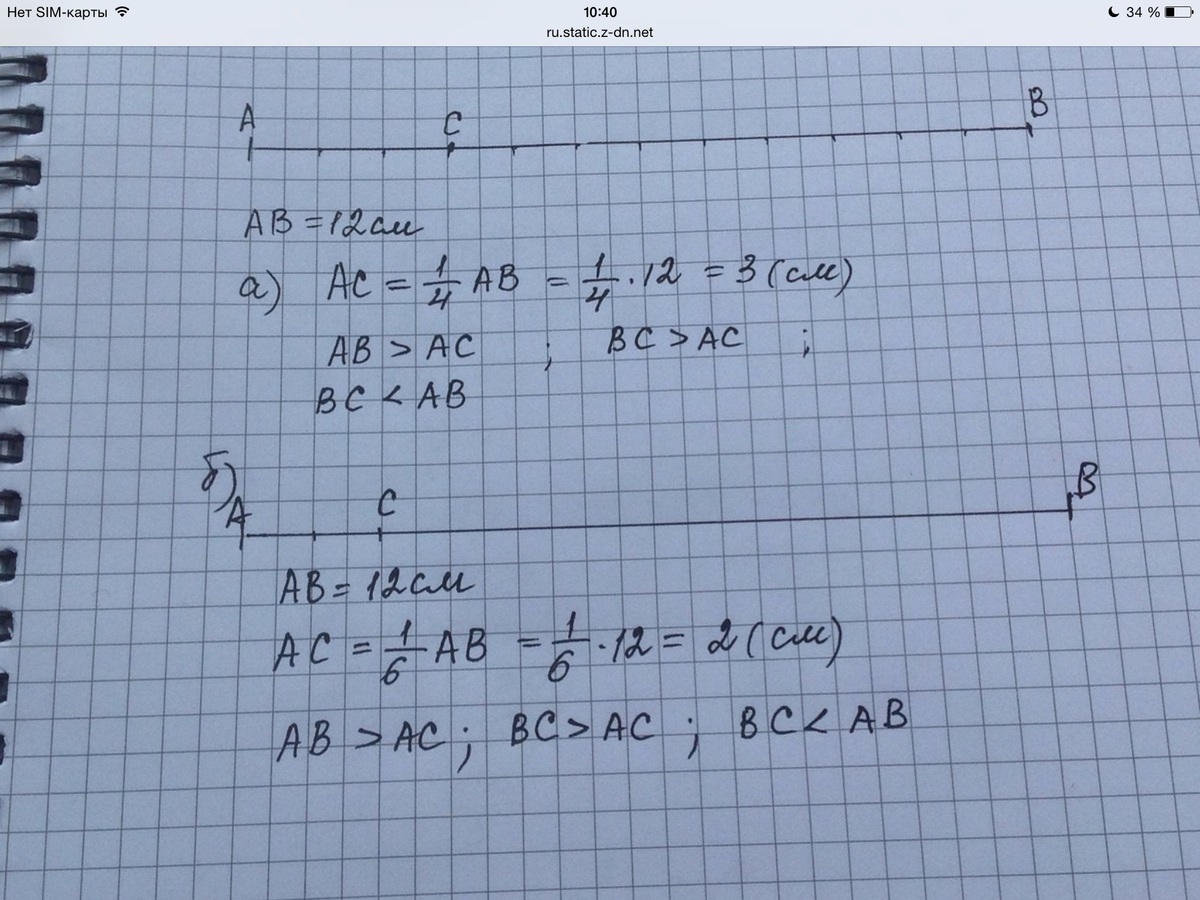 Нет SIM-карты 10:40 34 %
ru.static.z-dn.net
A C B
AB = 12 см
а) AC = 1/4 AB = 1/4 · 12 = 3 (см)
AB > AC ; BC > AC ;
BC < AB
б)
A C B
AB = 12 см
AC = 1/6 AB = 1/6 · 12 = 2 (см)
AB > AC ; BC > AC ; BC < AB